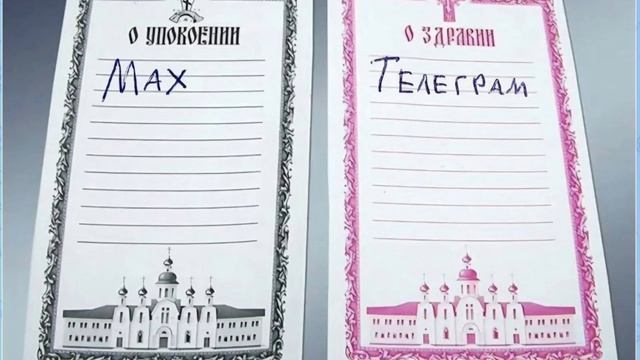 О УПОКОЕНИИ
Мах
О ЗДРАВИИ
ТЕЛЕГРАМ